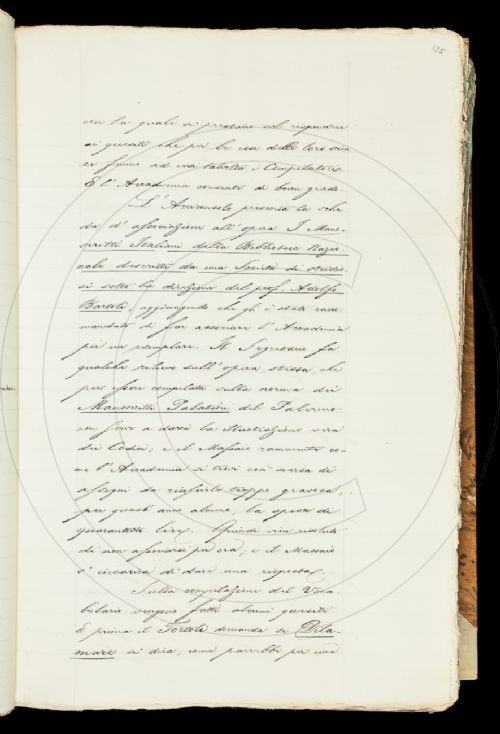 125
con la quale si pregano nel rispondere
ai quesiti che per le cose della loro scien-
za fanno ad essi talvolta i Compilatori.
E l'Accademia consente di buon grado.
L'Arciconsolo presenta la sche-
da d'associazione all'opera I Mano-
scritti Italiani della Biblioteca Nazio-
nale descritti da una Società di studio-
si sotto la direzione del prof. Adolfo
Bartoli, aggiungendo che gli è stato racco-
mandato di far associare l'Accademia
per un esemplare. Il Segretario fa
qualche rilievo sull'opera stessa, che
può essere compilata sulla norma dei
Manoscritti Palatini del Palermo
non a darci la illustrazione vera
dei Codici; e il Massaio rammenta co-
me l'Accademia si trovi così scarsa di
assegni da riuscirle troppo gravosa,
per quest'anno almeno, la spesa di
quarantotto lire. Quindi vien risoluto
di non associarsi per ora; e il Massaio
s'incarica di dare una risposta.
Sulla compilazione del Voca-
bolario vengono fatti alcuni quesiti
E prima il Tortoli domanda se Dila-
mare si dica, come parrebbe per una